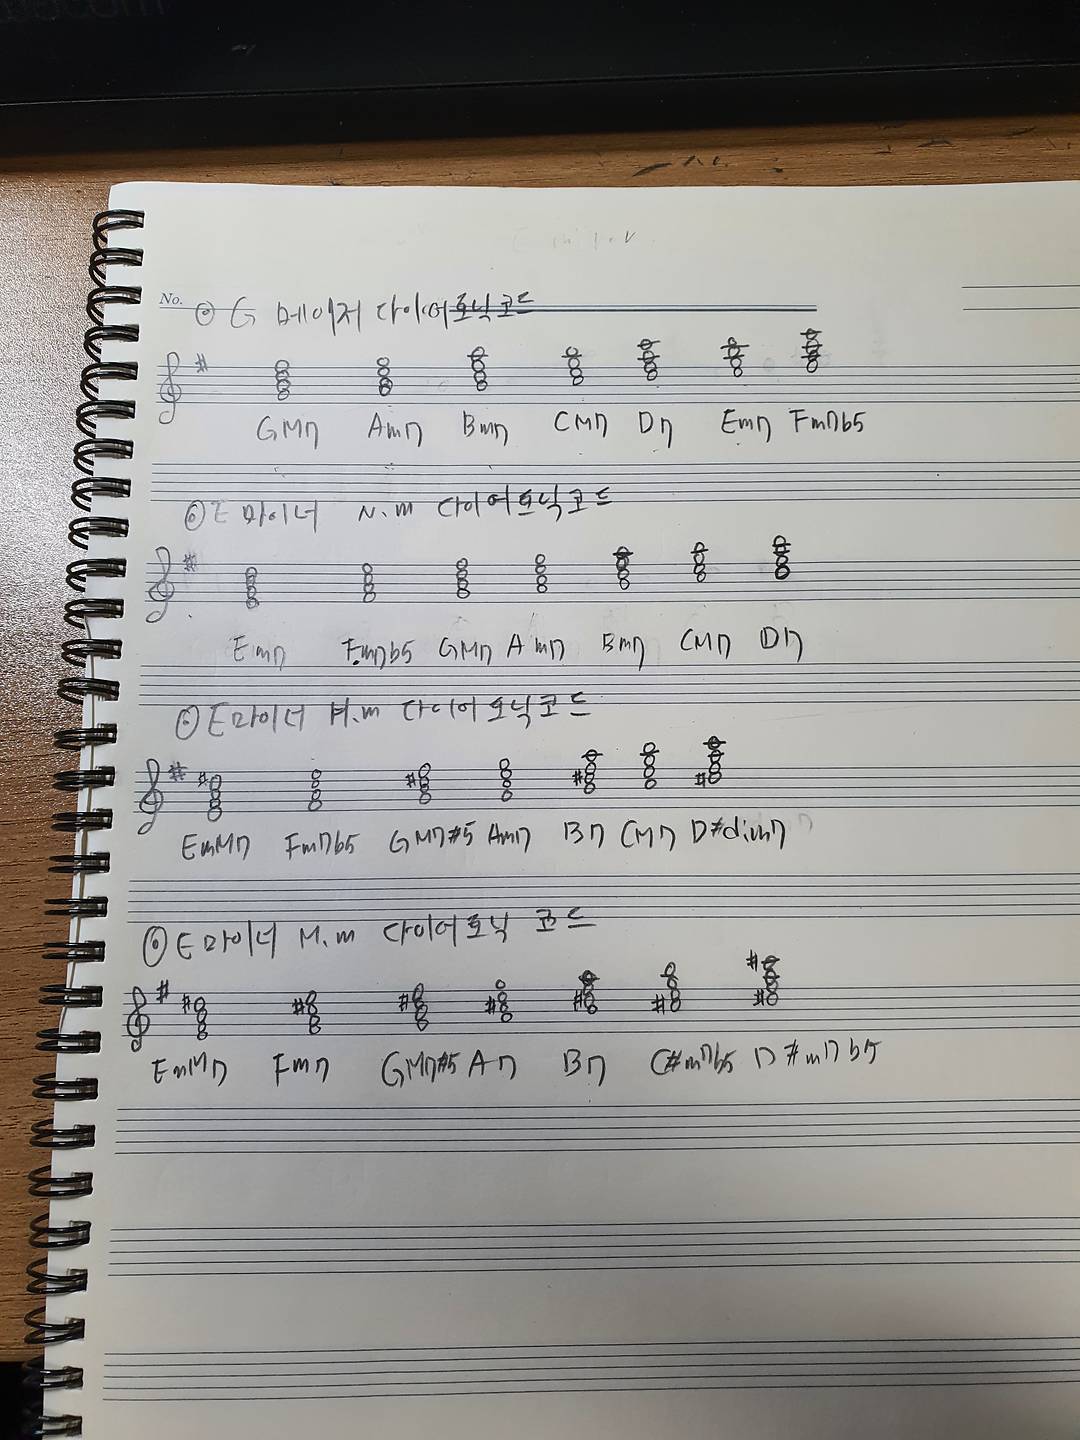 No. ⊙ G 메이저 다이어토닉코드
GM7 Am7 Bm7 CM7 D7 Em7 Fm7b5
⊙ E 마이너 N.m 다이어토닉코드
Em7 Fm7b5 GM7 Am7 Bm7 CM7 D7
⊙ E마이너 H.m 다이어토닉코드
EmM7 Fm7b5 GM7#5 Am7 B7 CM7 D#dim7
⊙ E마이너 M.m 다이어토닉 코드
EmM7 Fm7 GM7#5 A7 B7 C#m7b5 D#m7b5